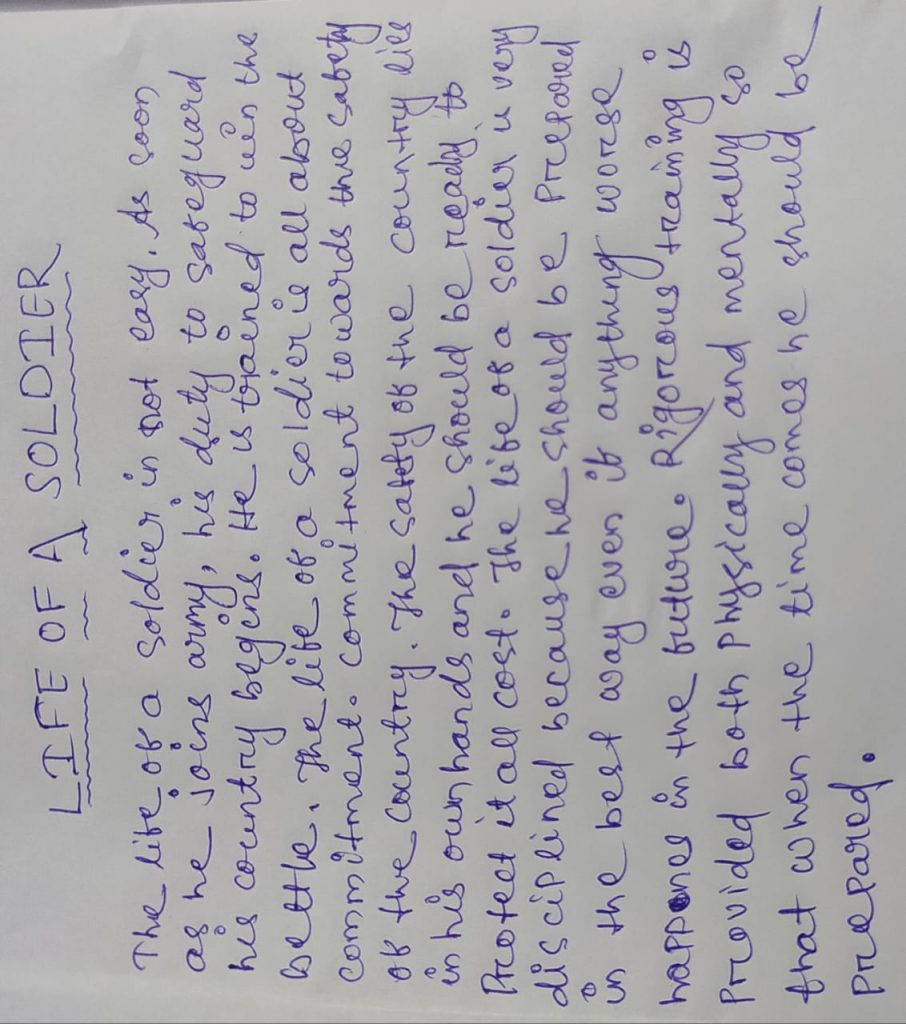 LIFE OF A SOLDIER
The life of a soldier in not easy. As soon
as he joins army, his duty to safeguard
his country begins. He is trained to win the
bettle. The life of a soldier is all about
commitment. commitment towards the safety
of the country. The safety of the country lies
in his own hands and he should be ready to
Protect it all cost. The life of a soldier is very
disciplined because he should be prepared
in the best way even if anything worse
happens in the future. Rigorous training is
Provided both physically and mentally so
that when the time comes he should be
prepared.